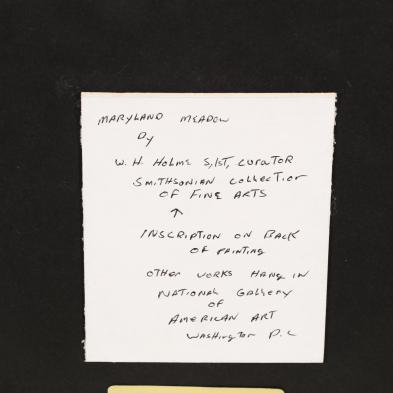 MARYLAND MEADOW
By
W. H. Holme S, 1ST, curator
SMITHSONIAN collection
OF FINE ARTS
↑
INSCRIPTION ON BACK
OF PAINTING
OTHER WORKS HANG IN
NATIONAL GALLERY
OF
AMERICAN ART
WASHINGTON D.C